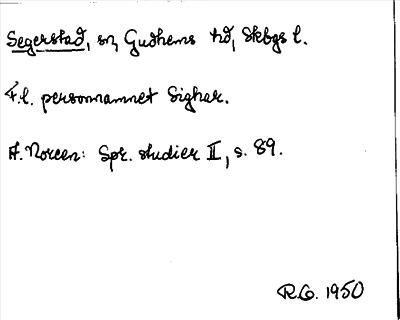 Segerstad, sn, Gudhems hd, Skbgs l.
F.l. personnamnet Sighar.
A. Noreen: Spr. studier II, s. 89.
R.G. 1950